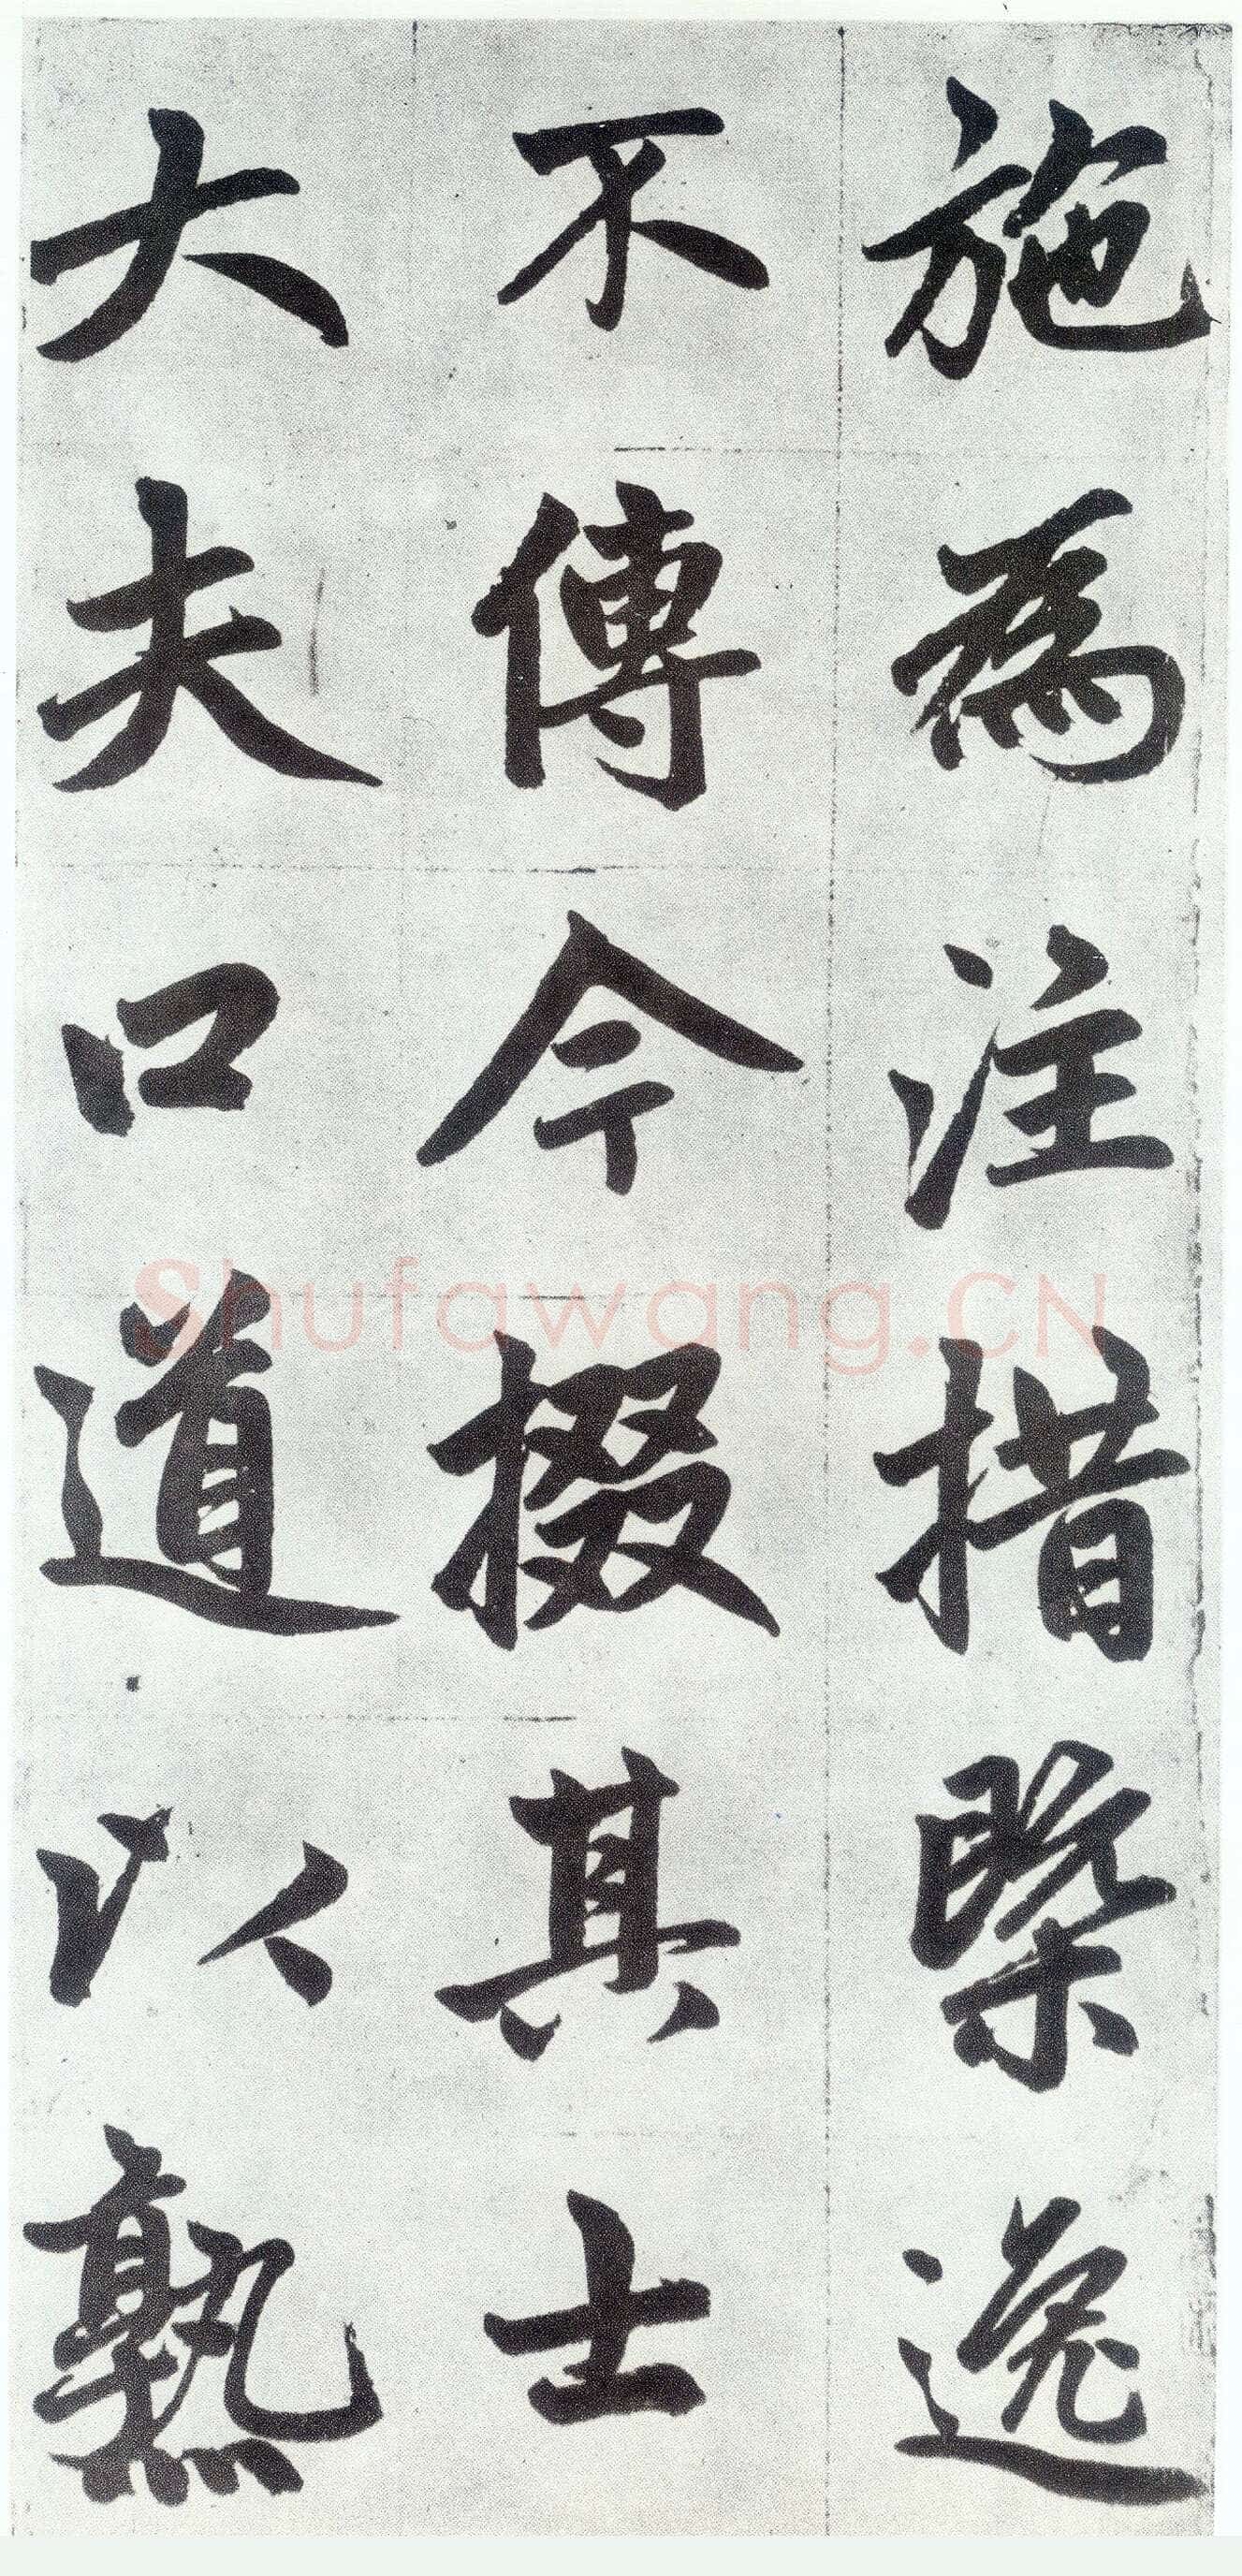 施為注措槩逸
不傳今掇其士
大夫口道以熟
Shufawang.CN